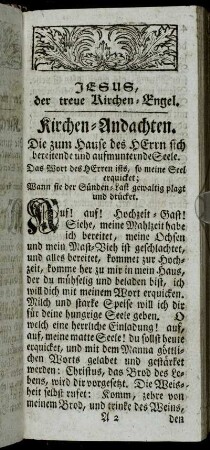 JESUS,
der treue Kirchen-Engel.
Kirchen-Andachten.
Die zum Hause des HErrn sich
bereitende und aufmunternde Seele.
Das Wort des HErren ists, so meine Seel
erquicket;
Wann sie der Sünden-Last gewaltig plagt
und drücket.
Auf! auf! Hochzeit-Gast!
Siehe, meine Mahlzeit habe
ich bereitet, meine Ochsen
und mein Mast-Vieh ist geschlachtet,
und alles bereitet, kommet zur Hoch-
zeit, komme her zu mir in mein Haus,
der du mühselig und beladen bist, ich
will dich mit meinem Wort erquicken.
Milch und starke Speise will ich dir
für deine hungrige Seele geben. O
welch eine herrliche Einladung! auf,
auf, meine matte Seele! du sollst heute
erquicket, und mit dem Manna göttli-
chen Worts gelabet und gestärket
werden: Christus, das Brod des Le-
bens, wird dir vorgesetzt. Die Weis-
heit selbst rufet: Komm, zehre von
meinem Brod, und trinke des Weins,
A 2 den